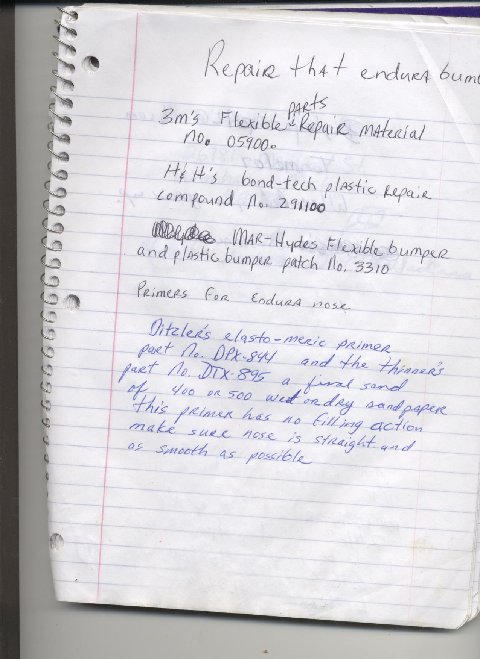 Repair that endura bum
3m's Flexible parts Repair Material
no. 05900.
H & H's bond-tech plastic Repair
compound No. 291100
MAR-Hydes Flexible bumper
and plastic bumper patch No. 3310
Primers for Endura nose
Ditzler's elasto-meric primer
part No. DPX-844 and the thinner's
part No. DTX-895 a final sand
of 400 or 500 wet or dry sandpaper
this primer has no filling action
make sure nose is straight and
as smooth as possible